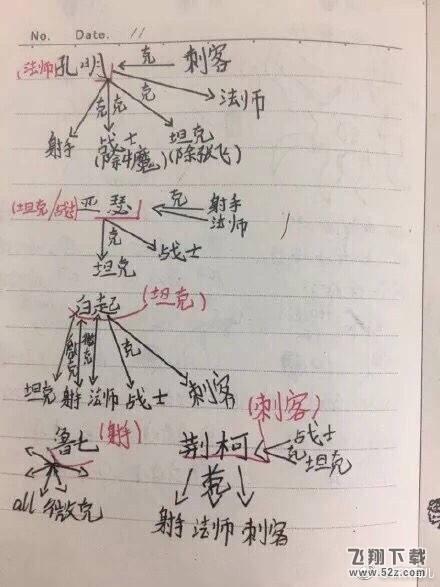 No.    Date.    11
(法师)孔明 克 刺客
克 克 克 法师
射手 战士 坦克
(除牛魔) (除张飞)
(坦克/战士) 亚瑟 克 射手
法师
克 战士
坦克
白起 (坦克)
微克 克
坦克 射手 法师 战士 刺客
鲁七 (射手) 荆柯 (刺客) 战士
克 坦克
all 微克 克
射手 法师 刺客
飞翔下载
www.52z.com